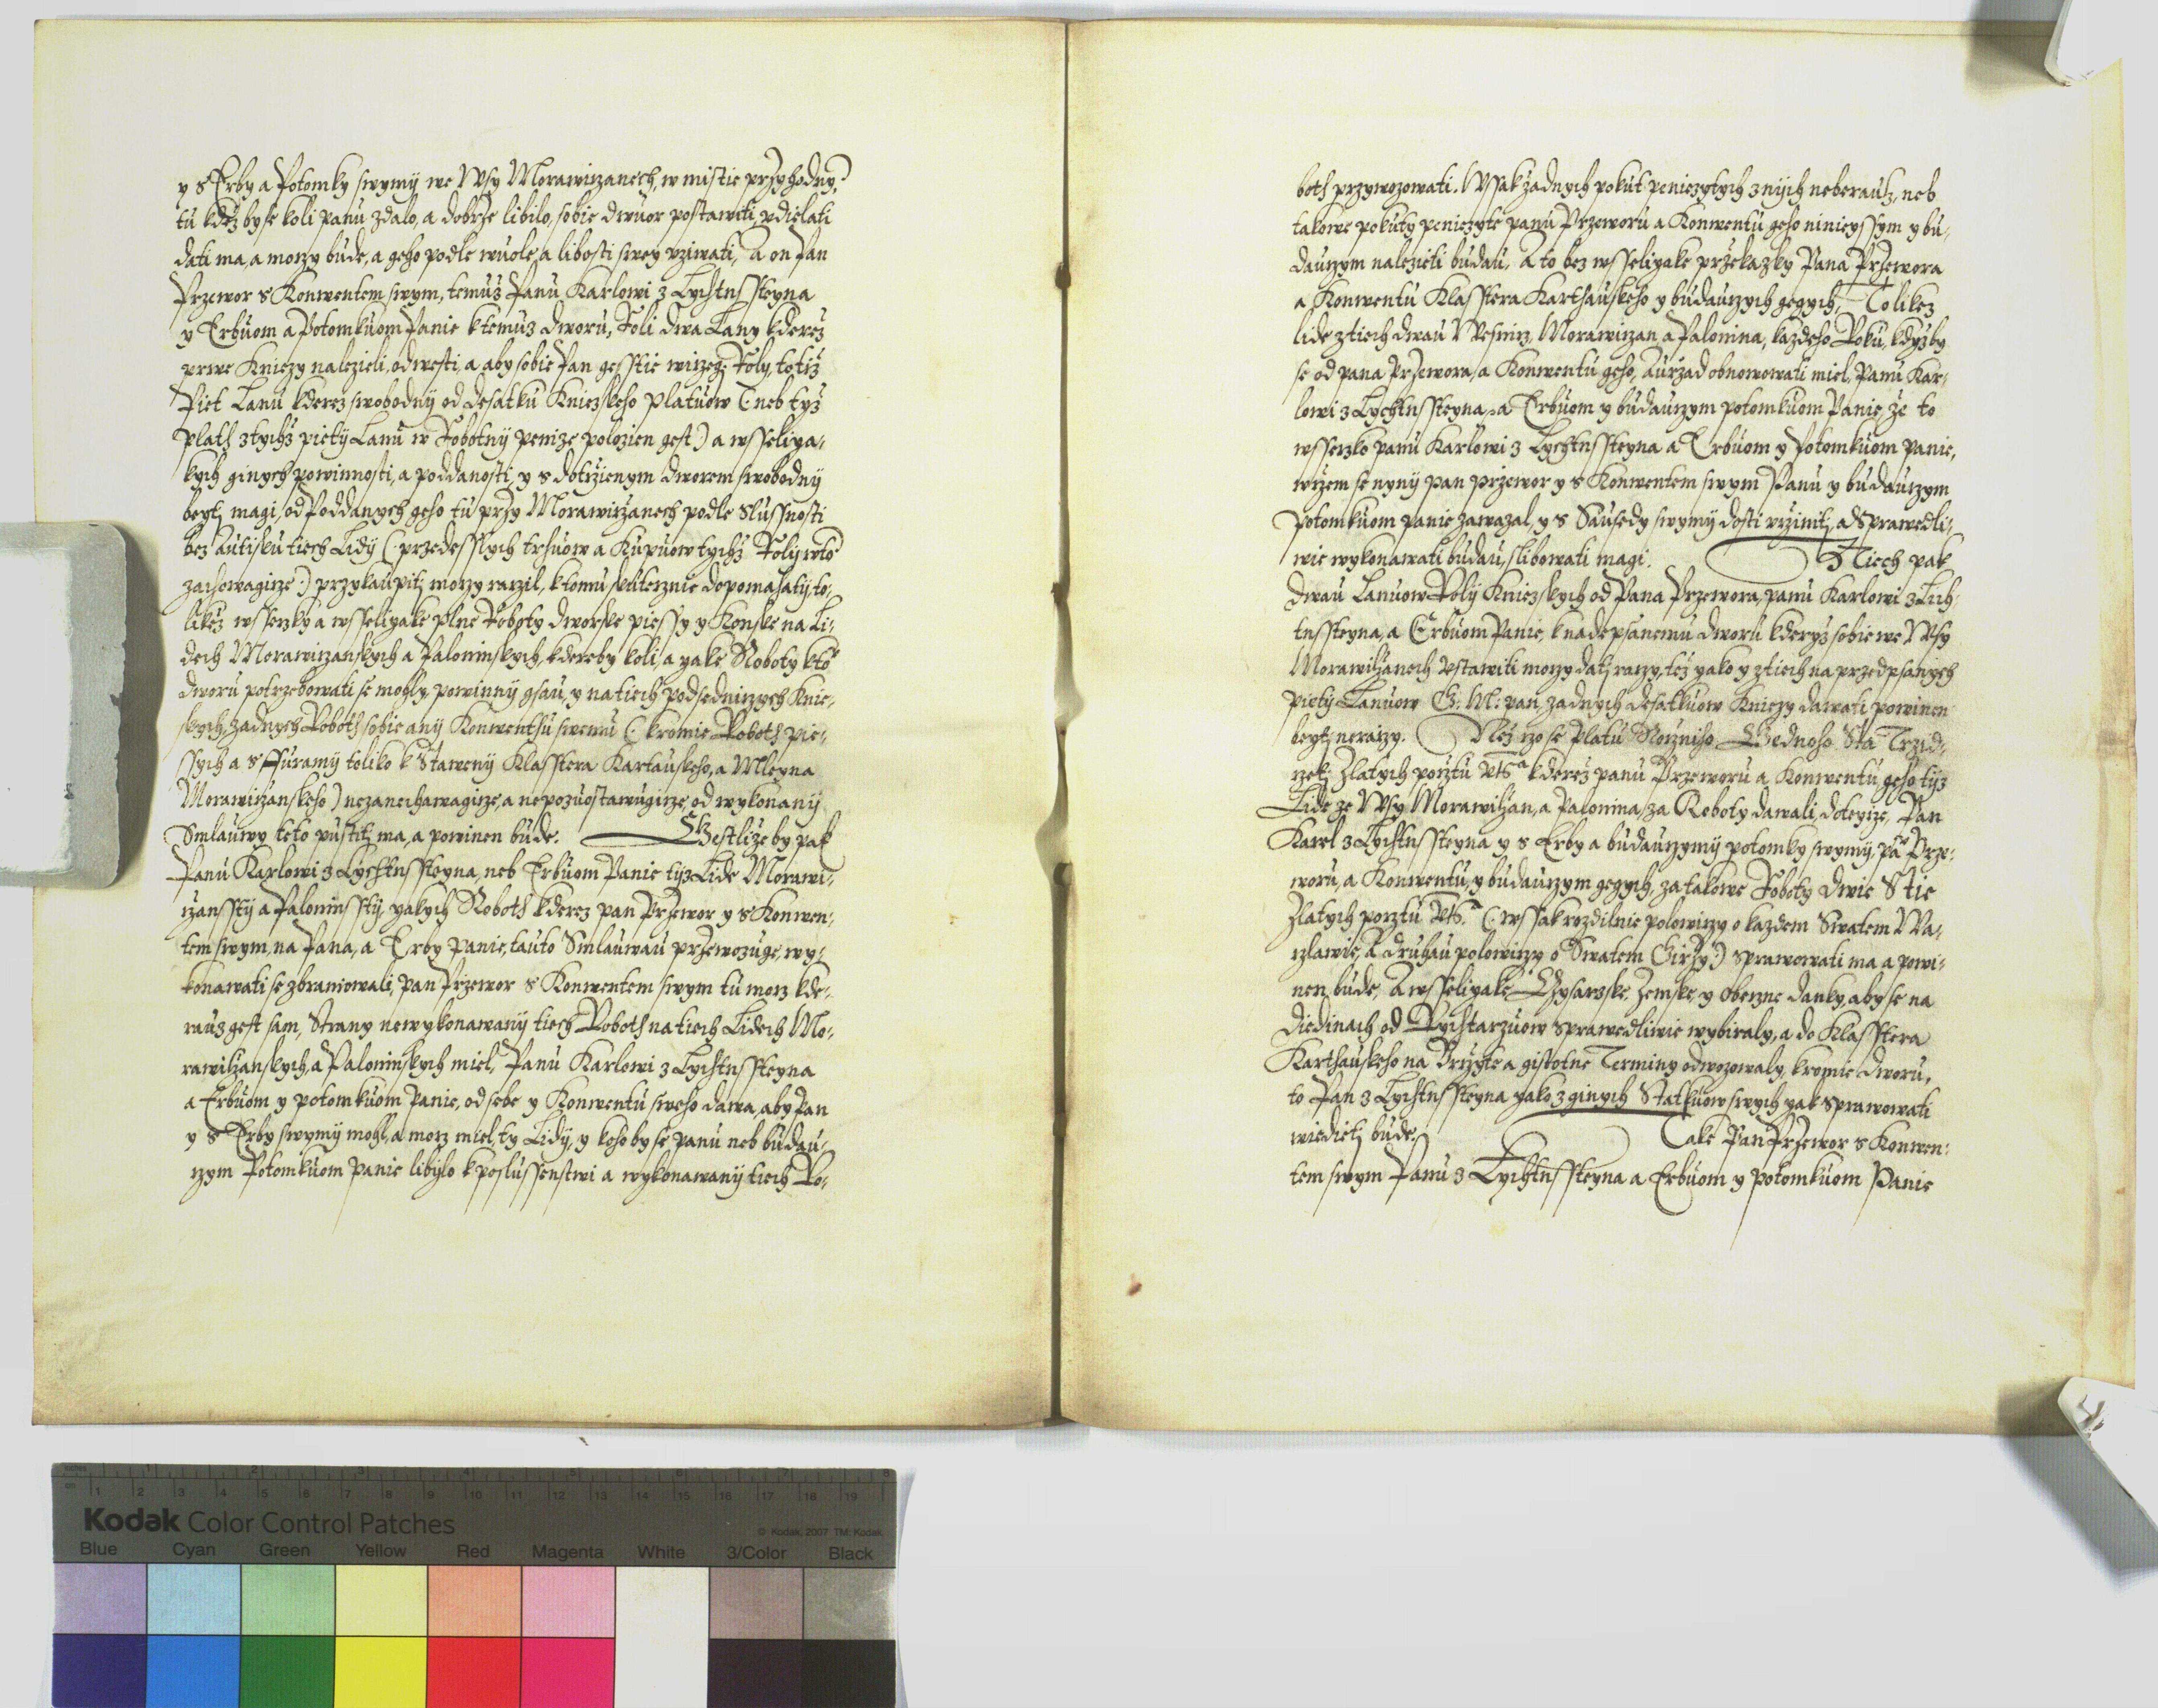 y s Erby a Potomky swymij we Wsy Morawiczanech, w mistie przyhodnẏ,
tu kdez by se koli panu zdalo, a dobrze libilo, sobie dwuor postawiti, vdielati
dati ma, a moczy bude, a geho podle wuole, a libosti swey vziwati, A on Pan
Przewor s Konwentem swym, temuz Panu Karlowi z Lychtnssteyna
y Erbuom a Potomkuom Panie k temuz dworu, Roli dwa Lany kderez
prwe Kniezy nalezieli, odwesti, a aby sobie Pan gesstie wiczeg: Roly, totiz
Piet Lanu kderez swobodny od desatku Kniezskeho platuow (: neb tyz
plath z tychz pietij Lanu w Robotny penize polozien gest :) a wsseliya-
kych ginych powinnosti, a poddanosti, y s dotczienym dworem swobodny
beytj magi, od Poddanych geho tu przy Morawiczanech podle Slussnosti
bez autisku tiech Lidij (: przedesslych trhuow a Kupuow tychz Roly w to
zachowagicze :) przykaupitj moczy raczil, k tomu skuteczne dopomahatij, to-
likez wsseczky a wsseliyake plne Roboty dworske piessy y Konske na Li-
dech Morawiczanskych a Paloninskych, kdereby koli, a yake Roboty k to͏̈
dworu potrzebowati se mohly, powinny gsau, y na tiech podsedniczych Knie-
skych, zadnych Roboth sobie any Konwenthu swemu (: kromie Roboth pie-
ssych a s ffuramy toliko k Staweny Klasstera Kartauskeho, a Mleyna
Morawiczanskeho :) nezanechawagicze, a nepozuostawugicze, od wykonany
Smlauwy teto pustitj ma, a powinen bude. Gestlize by pak
Panu Karlowi z Lychtnssteyna, neb Erbuom Panie tijz Lide Morawi-
czansstij a Paloninsstij, yakych Roboth kderez pan Przewor y s Konwen-
tem swym, na Pana, a Erby Panie, tauto Smlauwau przewozuge, wy-
konawati se zbraniowali, pan Przewor s Konwentem swym tu mocz kde-
rauz gest sam, Strany newykonawanij tiech Roboth na tiech Lidech Mo-
rawiczanskych, a Paloninskych miel, Panu Karlowi z Lychtnssteyna
a Erbuom y potomkuom Panie, od sebe y Konwentu sweho dawa, aby Pan
y s Erby swymij mohl, a mocz miel, ty Lidij, y koho by se panu neb budau-
czym Potomkuom panie libylo k poslussenstwi a wykonawanij tiech Ro-
both przywozowati. Wsak zadnych pokut peniezytych z nijch neberaucz, neb
takowe pokuty peniezyte panu Przeworu a Konwentu geho nynieyssym y bu-
dauczym nalezieti budau, A to bez wsseliyake przekazky Pana Przewora
a Konwentu Klasstera Karthauskeho y budauczych gegych, Tolikez
lide z tiech dwau Wesnicz, Morawiczan a Palonina, kazdeho Roku, kdyz by
se od pana Przewora, a Konwentu geho, auržad obnowowati miel, Panu Kar-
lowi z Lychtnssteyna, a Erbuom y budauczym potomkuom Panie, ze to
wsseczko panu Karlowi z Lychtnssteyna a Erbuom y Potomkuom panie,
w czem se nyny pan przewor y s Konwentem swym Panu y budauczym
potomkuom panie zawazal, y s Sausedy swymij dosti vcziniti, a Sprawedli-
wie wykonawati budau, slibowati magi. Z Tiech pak
dwau Lanuow Rolij Kniezskych od Pana Przewora, panu Karlowi z Lich-
tnssteyna, a Erbuom Panie, k nadepsanemu dworu kderyz sobie we Wsy
Morawiczanech Vstawiti moczy datj raczy, tez yako y z tiech na przedpsanych
pietij Lanuow G: M: pan, zadnych desatkuow Kniezy dawati powinen
beytj neraczy. Nez czo se Platu Roczniho Gednoho Sta Trzid-
czeti Zlatych pocztu Rhs: kderez panu Przeworu a Konwentu geho tijz
Lide ze Wsy Morawiczan, a Palonina, za Roboty dawali, doteycze, Pan
Karel z Lychtnssteyna y s Erby a budauczymij potomky swymij, pa: Prze-
woru, a Konwentu, y budauczym gegych, za takowe Roboty Dwie Stie
Zlatych pocztu Rhs: (: wssak rozdilnie polowiczy o kazdem Swatem Wa-
czlawie, A druhau polowiczy o Swatem Girzy :) sprawowati ma a powi-
nen bude, A wsseliyake Cysarzske, Zemske, y obeczne danky, aby se na
Diedinach od Rychtarzuow sprawedliwie wybiraly, a do Klasstera
Karthauskeho na Vrczyte a gistotne Terminy odwozowaly, kromie dworu,
to Pan z Lychtnssteyna yako z ginych Statkuow swych yak sprawowati
wiedietj bude. Take Pan Przewor s Konwen-
tem swym Panu z Lychtnssteyna a Erbuom y potomkuom Panie
Kodak Color Control Patches
© Kodak, 2007 TM: Kodak
Blue Cyan Green Yellow Red Magenta White 3/Color Black